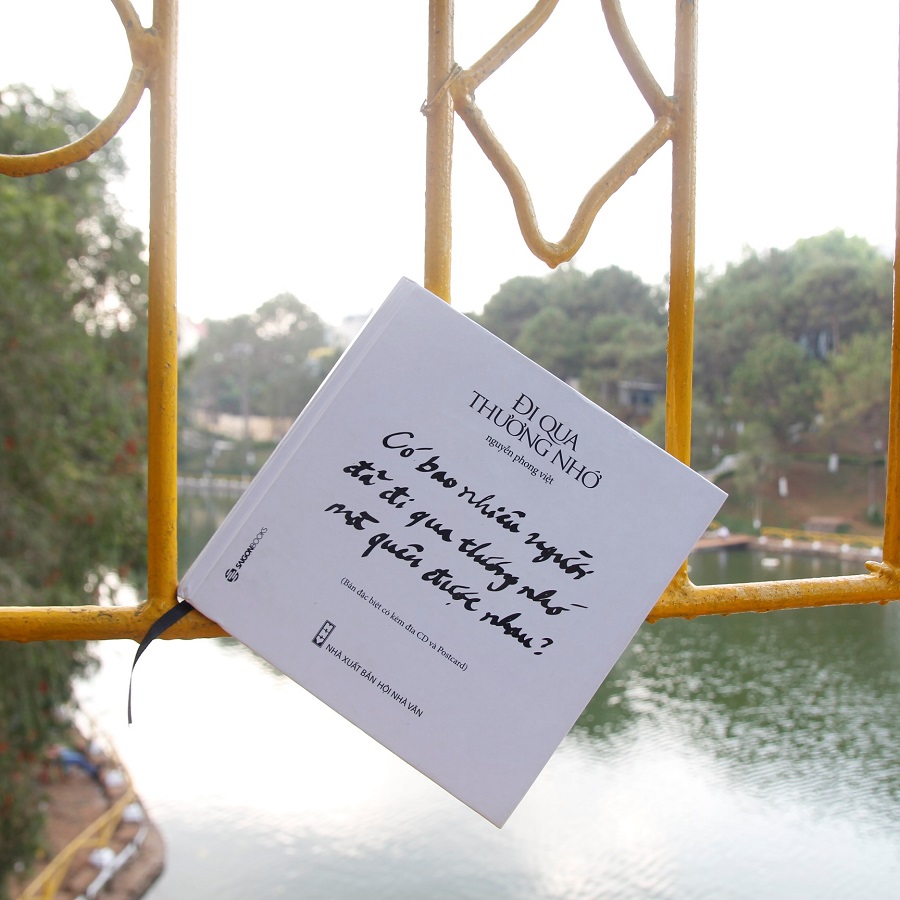 ĐI QUA
THƯƠNG NHỚ
nguyễn phong việt
Có bao nhiêu người
đã đi qua thương nhớ
mà quên được nhau?
(Bản đặc biệt có kèm đĩa CD và Postcard)
NHÀ XUẤT BẢN HỘI NHÀ VĂN
SAIGONBOOKS